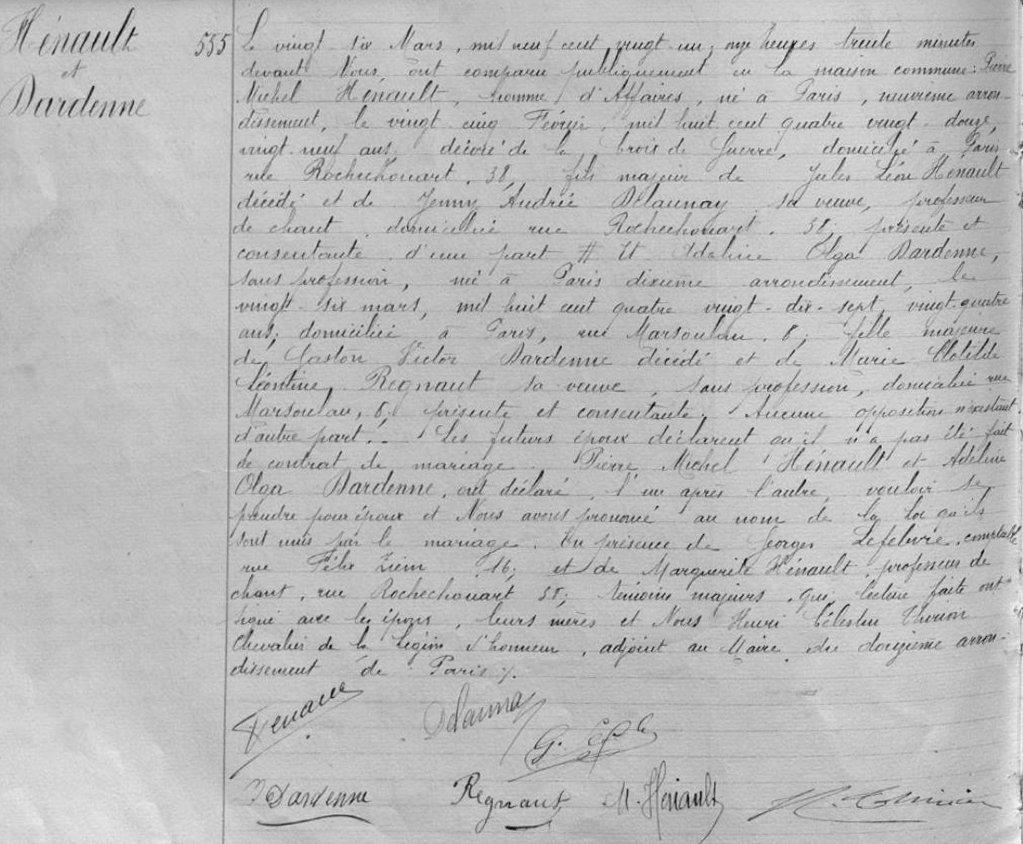 Hénault
et
Dardenne
555
Le vingt six Mars, mil neuf cent vingt un, onze heures trente minutes
devant Nous, ont comparu publiquement en la maison commune : Pierre
Michel Hénault, homme d'Affaires, né à Paris, neuvième arron-
dissement, le vingt cinq Février, mil huit cent quatre vingt douze,
vingt neuf ans, décoré de la Croix de Guerre, domicilié à Paris
rue Rochechouart, 38, fils majeur de Jules Léon Hénault
décédé et de Jenny Andrée Delaunay sa veuve, professeur
de chant, domiciliée rue Rochechouart, 38, présente et
consentante, d'une part # Et Adeline Olga Dardenne,
sans profession, née à Paris dixième arrondissement, le
vingt six mars, mil huit cent quatre vingt dix-sept, vingt quatre
ans, domiciliée à Paris, rue Marsoulan, 8, fille majeure
de Gaston Victor Dardenne décédé et de Marie Clotilde
Léontine Regnaut sa veuve, sans profession, domiciliée rue
Marsoulan, 8, présente et consentante. Aucune opposition n'existant
d'autre part. - Les futurs époux déclarent qu'il n'a pas été fait
de contrat de mariage. Pierre Michel Hénault et Adeline
Olga Dardenne, ont déclaré, l'un après l'autre, vouloir se
prendre pour époux et Nous avons prononcé au nom de la Loi qu'ils
sont unis par le mariage. En présence de Georges Lefebvre, comptable
rue Félix Ziem, 16; et de Marguerite Hénault, professeur de
chant, rue Rochechouart 38; témoins majeurs, qui, lecture faite ont
signé avec les époux, leurs mères et Nous Henri Célestin
Chevalier de la Légion d'honneur, adjoint au Maire du douzième arron-
dissement de Paris ./.
Delaunay
G.
Dardenne Regnaut M. Hénault